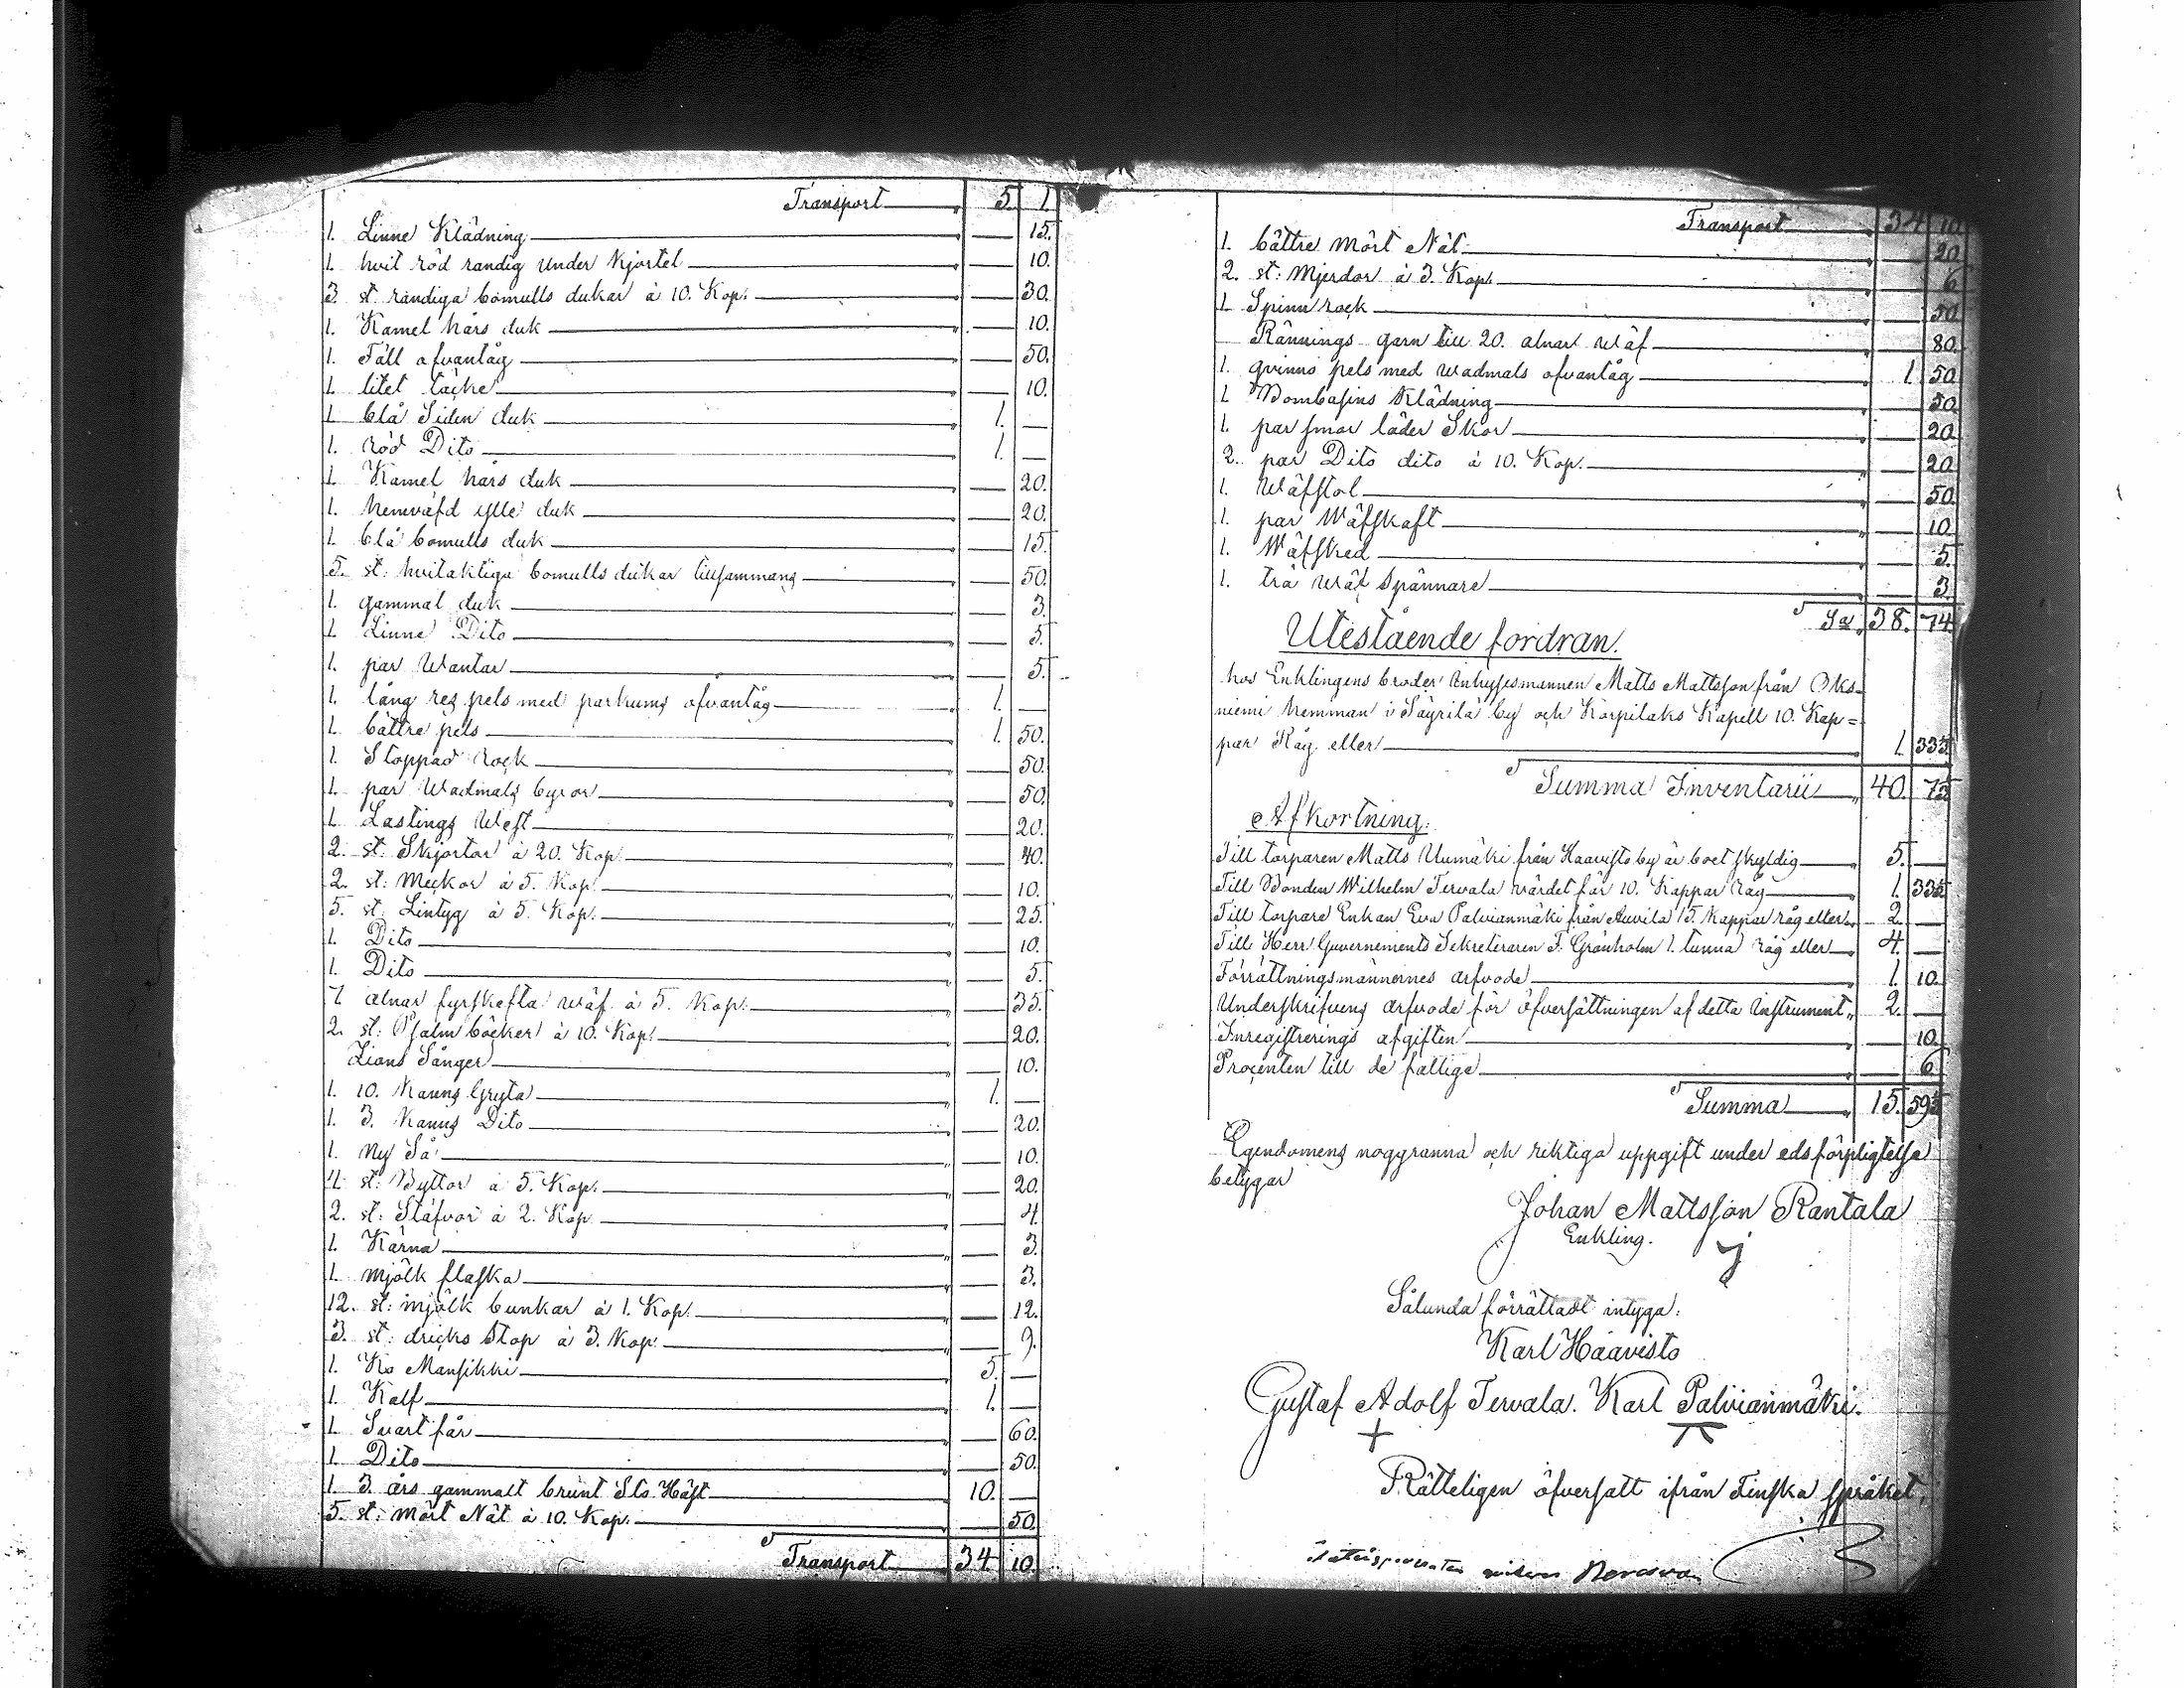 Transport 5. 1.
1. Linne Klädning — 15.
1. hvit röd randig under Kjortel — 10.
3 st. randiga bomulls dukar à 10. Kop. — 30.
1. Kamel hårs duk — 10.
1. Fäll afvantåg — 50.
1. litet täcke — 10.
1. blå Siden duk 1. —
1. röd Dito 1. —
1. Kamel hårs duk — 20.
1. hemväfd ylle duk — 20.
1. blå bomulls duk — 15.
5. st: hvitaktiga bomulls dukar tillsammans — 50.
1. gammal duk — 3.
1. Linne Dito — 5.
1. par Wantar — 5.
1. lång res pels med parkums ofvantåg 1. —
1. bättre pels 1. 50.
1. Stoppad rock — 50.
1. par Wadmals byxor — 50.
1. Lastings West — 20.
2. st: Skjortor à 20. Kop. — 40.
2. st: Meckor à 5. Kop. — 10.
5. st. Lintyg à 5. Kop. — 25.
1. Dito — 10.
1. Dito — 5.
7 alnar fyrskafta wäf à 5. Kop. — 35.
2. st: Psalm böcker à 10. Kop. — 20.
Zions Sånger — 10.
1. 10. Kanns Gryta 1. —
1. 3. Kanns Dito — 20.
1. ny Så — 10.
4. st: Byttor à 5. Kop. — 20.
2. st: Stäfvor à 2. Kop. — 4.
1. Kärna — 3.
1. mjölk flaska — 3.
12. st: mjölk bunkar à 1. Kop. — 12.
3. st: dricks Stop à 3. Kop. — 9.
1. Ko Mansikki 5. —
1. Kalf 1. —
1. Svart får — 60.
1. Dito — 50.
1. 3. års gammalt brunt Sto Häst 10. —
5. st: mört Nät à 10. Kop. — 50.
Transport 34. 10.
Transport 34 10.
1. bättre mört Nät — 20
2. st: Mjerdor à 3. Kop. — 6
1. Spinn rock — 50
Rännings garn till 20. alnar Wäf — 80.
1. qvinno pels med wadmals ofvantåg 1. 50
1. Bombasins Klädning — 50.
1. par smor läder Skor — 20
2. par Dito dito à 10. Kop. — 20
1. Wäfstol — 50.
1. par Wäfskaft — 10.
1. Wäfsked — 5.
1. trä Wäf spännare — 3.
Sa 38. 74
Utestående fordran.
hos Enklingens broder Inhysesmannen Matts Mattsson från Oks-
niemi hemman i Säyrilä by och Korpilaks Kapell 10. Kap=
par Råg eller 1. 33⅓
Summa Inventarii 40. 7⅓
Afkortning.
Till torparen Matts Uumäki från Haavisto by är boet skyldig 5. —
Till Bonden Wilhelm Tervala wärdet för 10. Kappar råg 1. 33⅓
Till torpare Enkan Eva Palvianmäki från Auvila 15. kappar råg eller 2. —
Till Herr Guvernements Sekreteraren F. Grönholm 1. tunna råg eller 4. —
Förrättningsmännernes arfvode 1. 10.
Underskrifvens arfvode för öfversättningen af detta instrument 2. —
Inregistrerings afgiften — 10.
Procenten till de fattige — 6
Summa 15. 59⅓
Egendomens noggranna och riktiga uppgift under edsförpligtelse
betygar
Johan Mattsson Rantala
Enkling.
Sålunda förrättadt intyga:
Karl Haavisto
Gustaf Adolf Tervala. Karl Palvianmäki.
Rätteligen öfversatt ifrån Finska språket,